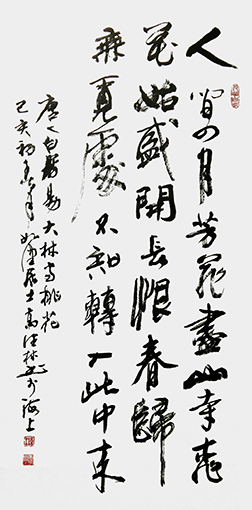 人間四月芳菲盡山寺桃
花始盛開長恨春歸
無覓處不知轉入此中來
唐人白居易大林寺桃花
己亥初居士高林書於海上